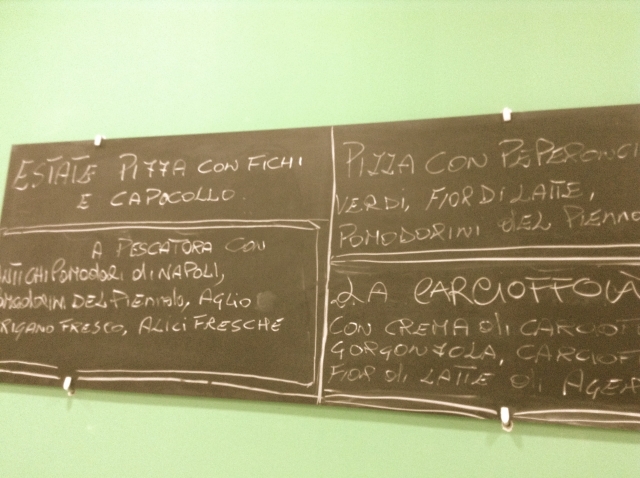 ESTATE PIZZA CON FICHI
E CAPOCOLLO
A PESCATORA CON
ANTICHI POMODORI di NAPOLI,
POMODORINI DEL PIENNOLO, AGLIO
ORIGANO FRESCO, ALICI FRESCHE
PIZZA CON PEPERONCI
VERDI, FIOR DI LATTE,
POMODORINI DEL PIENNO
LA CARCIOFFOLA
CON CREMA di CARCIOF
GORGONZOLA, CARCIOF
FIOR di LATTE di AGER